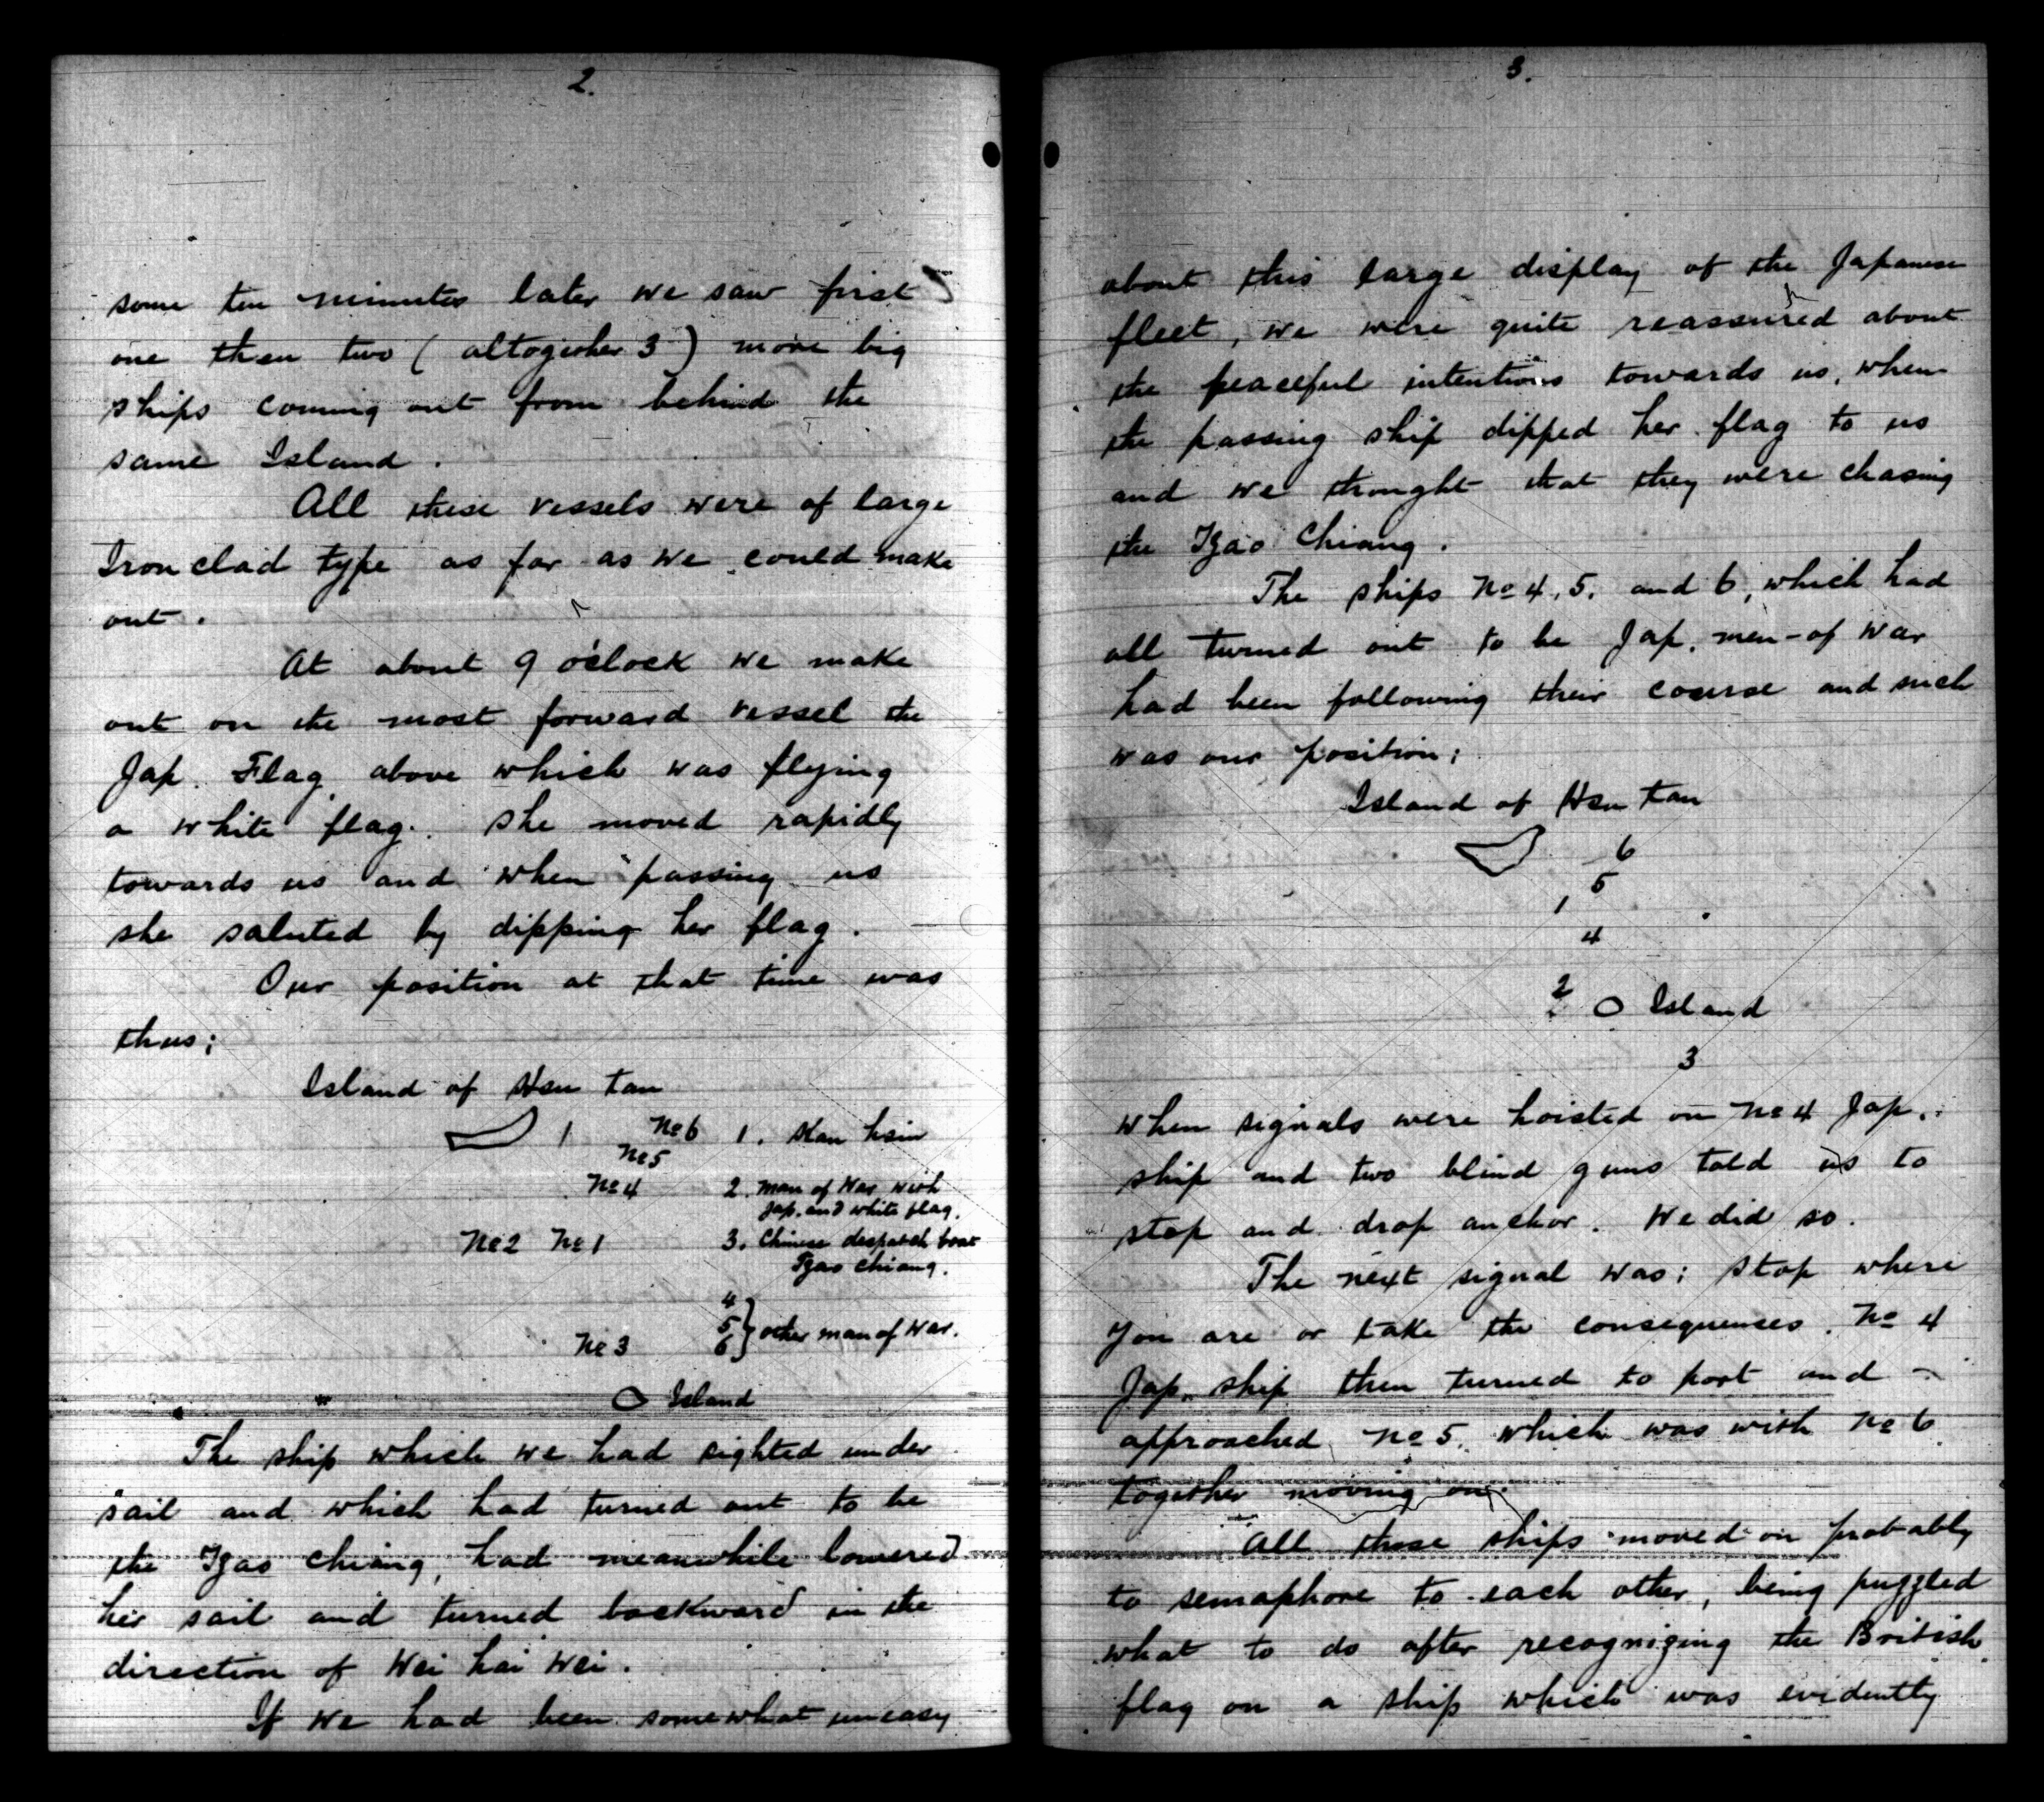 2.
some ten minutes later we saw first
one then two ( altogether 3 ) more big
ships coming out from behind the
same Island .
All these vessels were of large
Iron clad type as far as we could make
out .
At about 9 o'clock we make
out on the most forward vessel the
Jap. Flag above which was flying
a white flag. She moved rapidly
towards us and when passing us
she saluted by dipping her flag .
Our position at that time was
thus ;
Island of Hsu tan
1 No 6 1. Kan hsin
No 5
No 4 2. man of War with
Jap. and white flag.
No 2 No 1 3. Chinese despatch boat
Tzao chiang.
4
5 } other man of War.
No 3 6
Island
The ship which we had sighted under
sail and which had turned out to be
the Tzao chiang, had meanwhile lowered
her sail and turned backward in the
direction of Wei hai Wei .
If we had been somewhat uneasy
3.
about this large display of the Japanese
fleet, we were quite reassured about
the peaceful intentions towards us, when
the passing ship dipped her flag to us
and we thought that they were chasing
the Tzao Chiang .
The ships No 4, 5, and 6, which had
all turned out to be Jap. men-of War
had been following their course and such
was our position ;
Island of Hsu tan
6
5
1
4
2
Island
3
When signals were hoisted on No 4 Jap.
ship and two blind guns told us to
stop and drop anchor. We did so.
The next signal was ; stop where
you are or take the consequenses. No 4
Jap. ship then turned to port and
approached No 5, which was with No 6
together moving on.
All these ships moved on probably
to semaphore to each other, being puzzled
what to do after recognizing the British
flag on a ship which was evidently